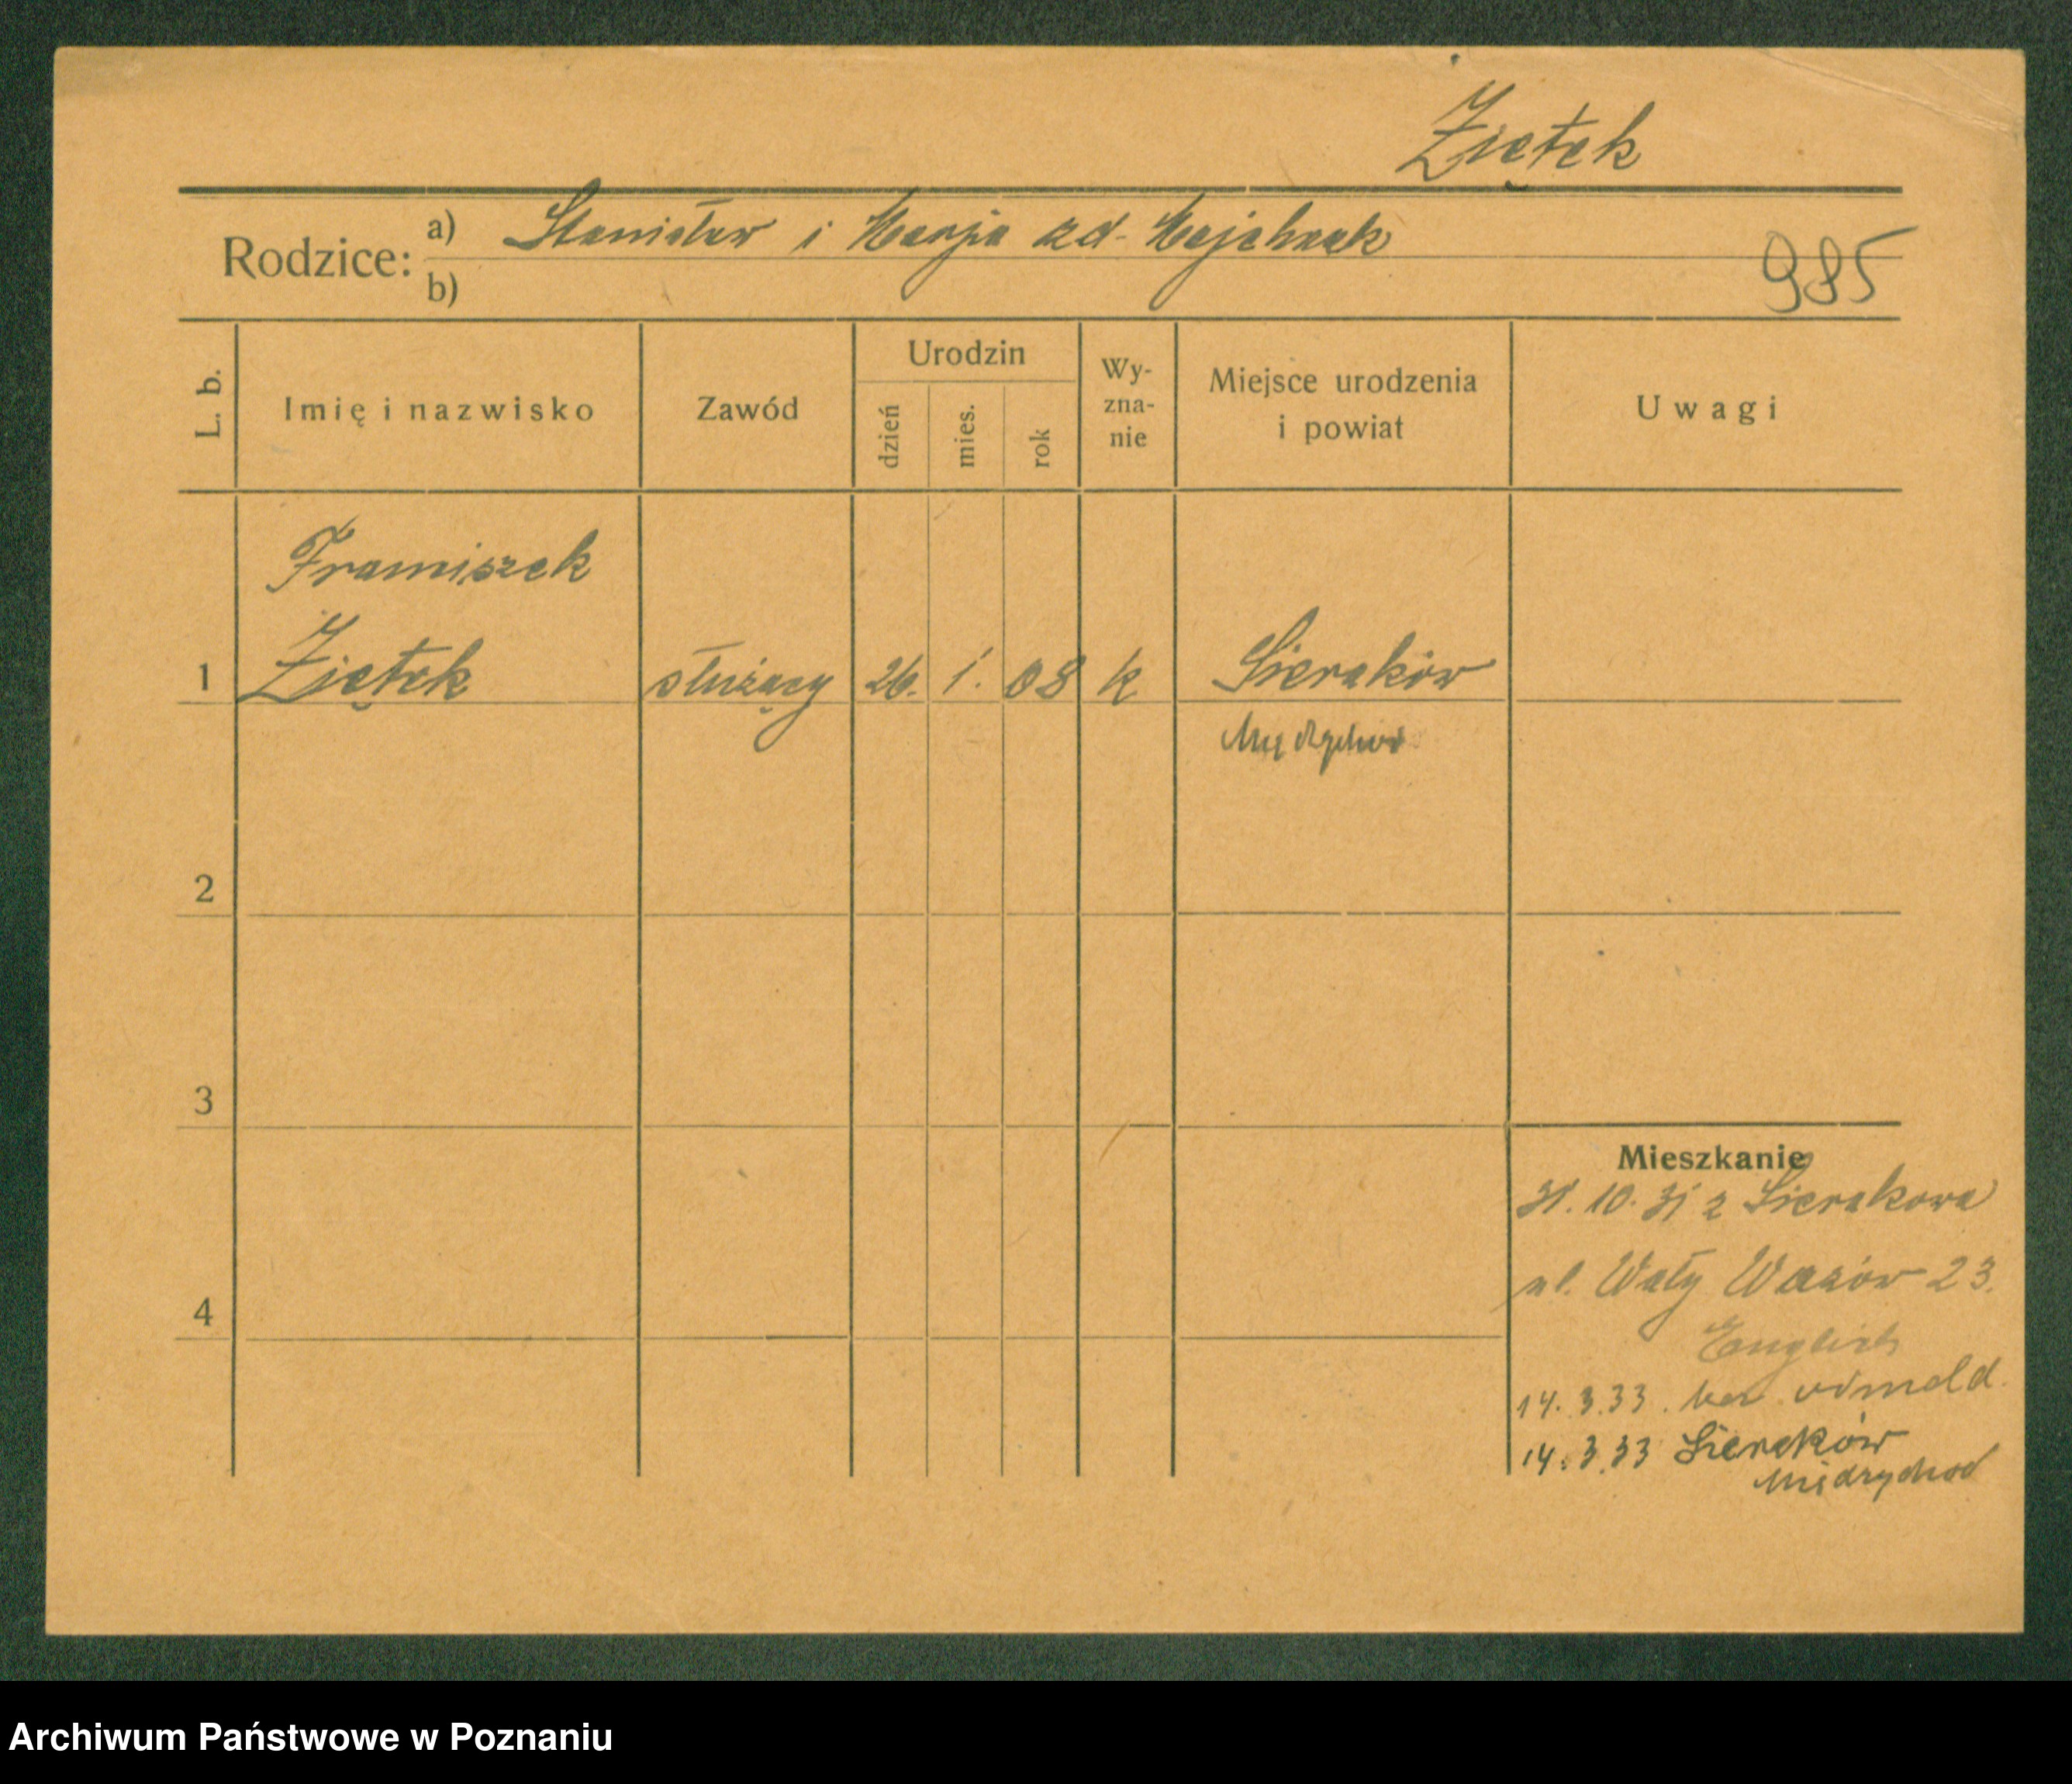 Ziętek
Rodzice: a) Stanisław i Marja zd. Majchrzak
b)
985
L. b.
Imię i nazwisko
Zawód
Urodzin
dzień
mies.
rok
Wy-
zna-
nie
Miejsce urodzenia
i powiat
Uwagi
Franciszek
1 Ziętek służący 26. 1. 08 k Sieraków
Międzychod
2
3
4
Mieszkanie
31. 10. 31 z Sierakowa
ul. Wały Wazów 23.
English
14. 3. 33. odmeld.
14. 3. 33 Sieraków
Międzychod
Archiwum Państwowe w Poznaniu